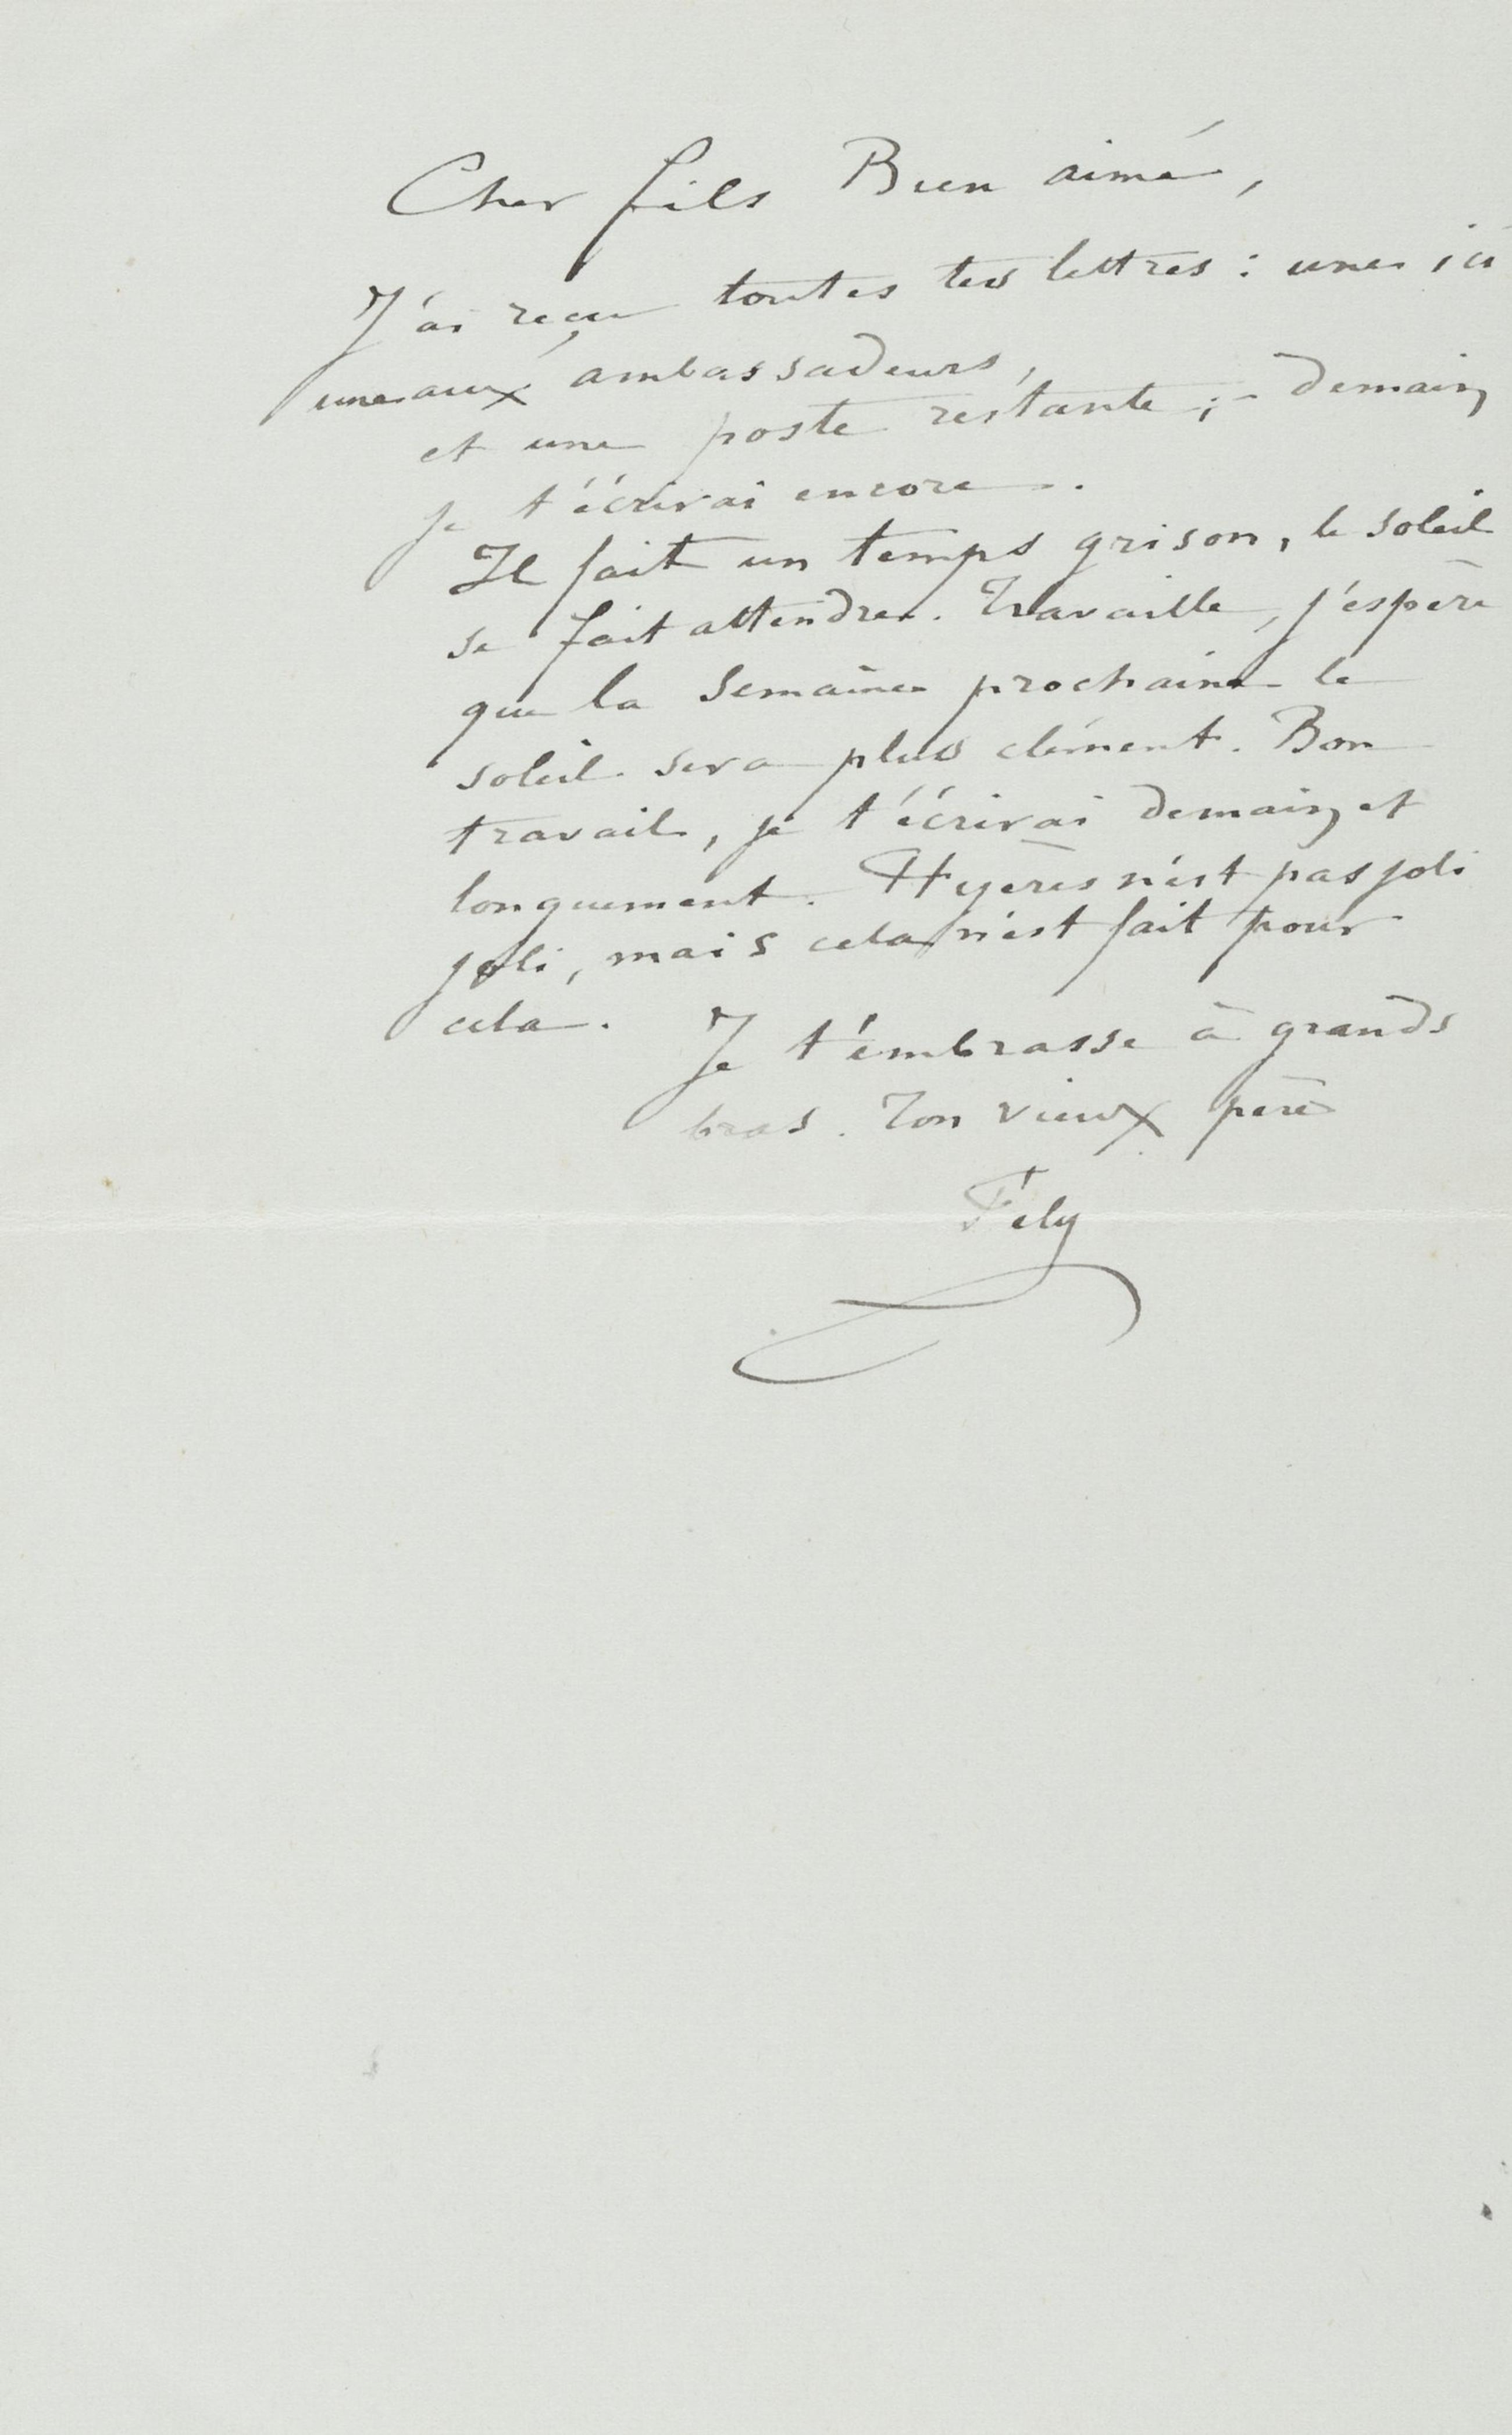 Cher fils Bien aimé,
J'ai reçu toutes tes lettres : une ici
une aux ambassadeurs,
et une poste restante ; - demain
je t'écrirai encore.
Il fait un temps grison, le soleil
se fait attendre. Travaille, j'espère
que la semaine prochaine le
soleil sera plus clément. Bon
travail, je t'écrirai demain et
longuement. Hyères n'est pas joli
joli, mais cela n'est fait pour
cela.
Je t'embrasse à grands
bras. Ton vieux père
Fély